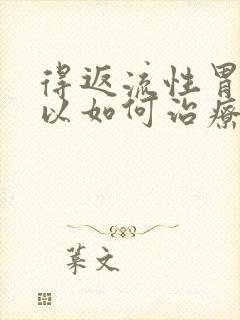 得返流性胃
以如何治療
葉文